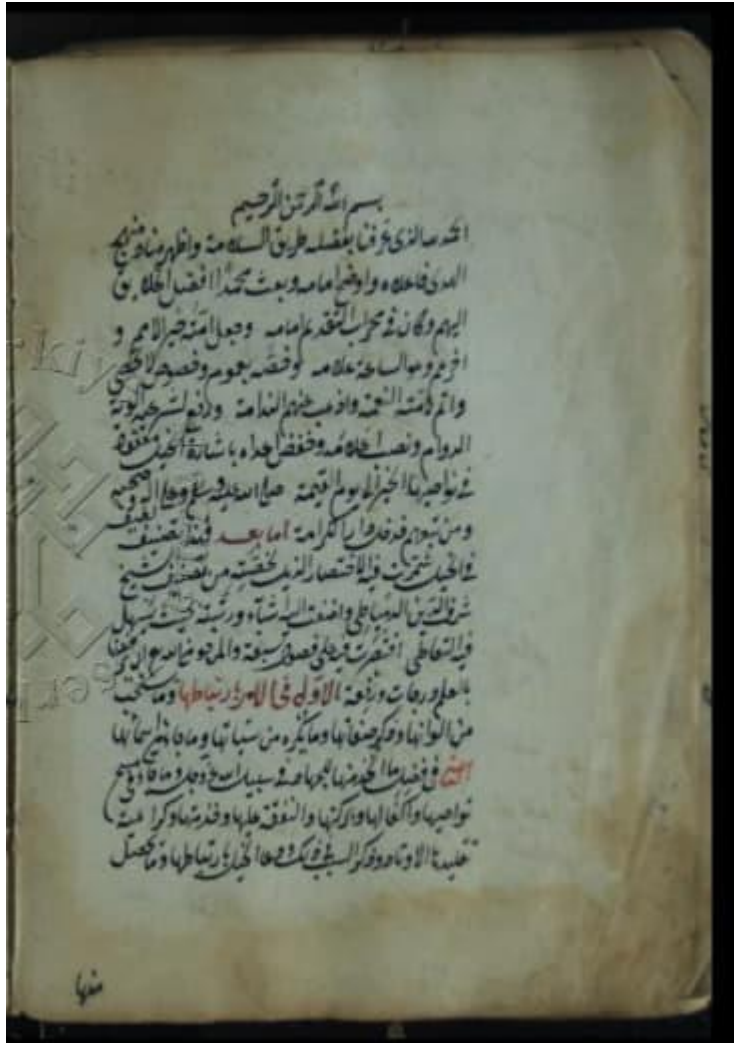 بسم الله الرحمن الرحيم
الحمد لله الذي عرفنا بفضله طريق السلامة واظهر منار منهج
الهدى فاعلاه واوضح امامه وبعث محمدا افضل الخلايق
اليهم وكان في محراب التقدم امامه وجعل امته خير الامم و
اخرهم وجا الساعة علامه وخصه بعموم وخصوص
واتم لامته النعمة واذهب عنهم الندامة ورفع لشرعه الوية
الدوام ونصب اعلامه وخفض اعداه باشارة الخيل معقود
في نواصيها الخير الى يوم القيمة صلى الله عليه وسلم وعلى اله وصحبه
ومن تبعهم فدخل دار الكرامة اما بعد فهذا تصنيف لطيف
في الخيل شمرت فيه الاختصار الذي لخصته من تصنيف الشيخ
شرف الدين الدمياطي واضفت اليه اشياء ورتبته بحيث يسهل
فيه التعاطي اقتصرت فيه على فصول سبعة والمرجو من الله ان
بالعلم درجات ورفعة الاول في الامر بارتباطها وما يستحب
من الوانها وذكر صفاتها وما يكره من شياتها وما جا في اسمائها
الثاني في فضل ما اتخذ منها للجهاد في سبيل الله عز وجل وما جا في مسح
نواصيها واكفالها والنفقة عليها وخدمتها وكراهة
تقليدها الاوتار وذكر السبب في ذلك ودعا الخيل بارتباطها وما يحصل
منها